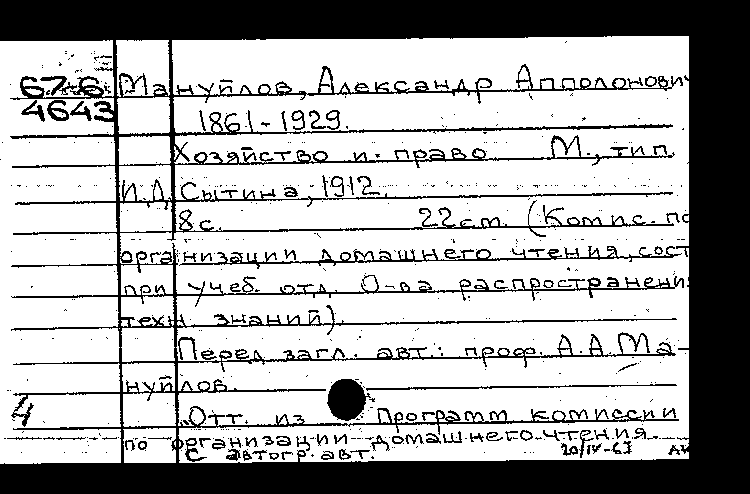 67-6 Мануйлов, Александр Апполонович
4643 1861-1929.
Хозяйство и право М., тип.
И.Д. Сытина, 1912.
8 с. 22 см. (Комис. по
организации домашнего чтения, сост
при учеб. отд. О-ва распространения
техн знаний).
Перед загл. авт.: проф. А.А. Ма-
нуйлов.
4 Отт. из Программ комиссии
по организации домашнего чтения.
С автогр. авт. 20/IV-67